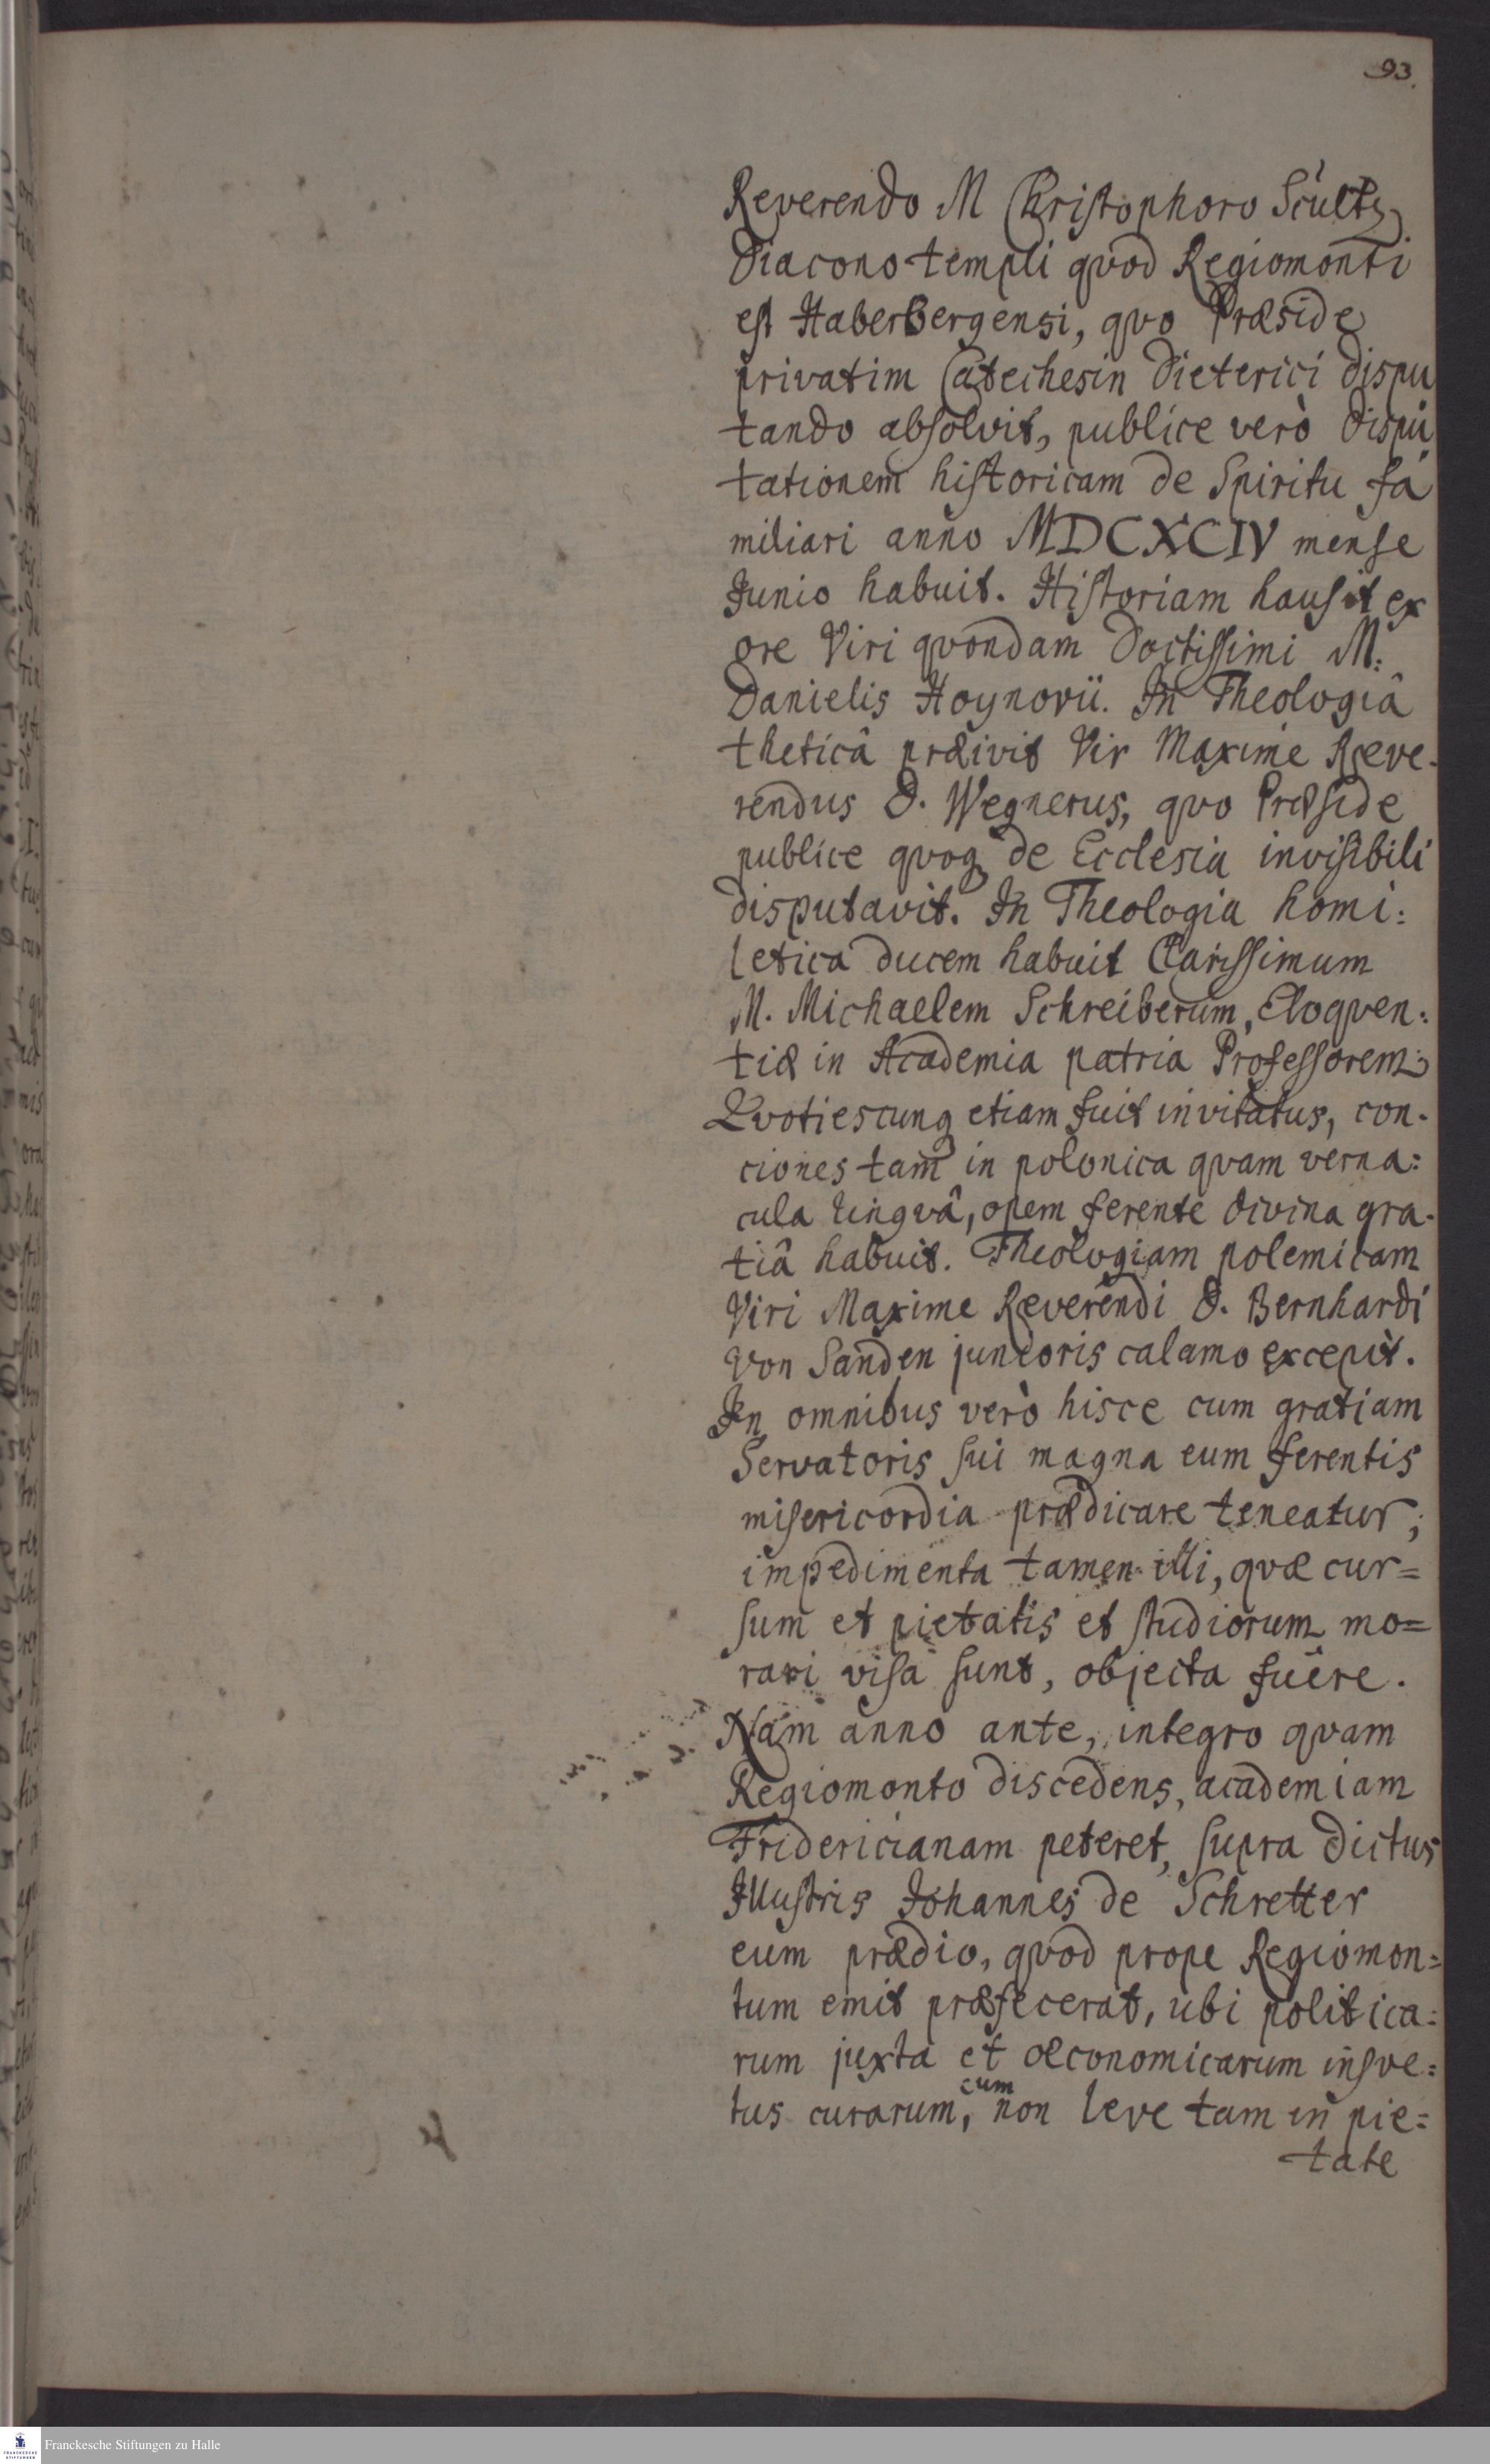 93.
Reverendo M Christophoro Scultz
Diacono templi quod Regiomonti
est Haberbergensi, quo Præside
privatim Catechesin Dieterici dispu
tando absolvit, publice verò dispu
tationem historicam de Spiritu fa
miliari anno MDCXCIV mense
Junio habuit. Historiam hausit ex
ore Viri quondam Doctissimi M.
Danielis Hoynovii. In Theologiâ
theticâ præivit Vir Maxime Reve-
rendus D. Wegnerus, quo Præside
publice quoq de Ecclesia invisibili
disputavit. In Theologia homi:
letica ducem habuit Clarissimum
M. Michaelem Schreiberum, Eloquen:
tiæ in Academia patria Professorem;
Quotiescunq etiam fuit invitatus, con-
ciones tam in polonica quam verna:
cula linguâ, opem ferente divina gra-
tiâ habuit. Theologiam polemicam
Viri Maxime Reverendi D. Bernhardi
Von Sanden junioris calamo excepit.
In omnibus verò hisce cum gratiam
Servatoris sui magna eum ferentis
misericordia prædicare teneatur;
impedimenta tamen illi, quæ cur=
sum et pietatis et studiorum mo=
rari visa sunt, objecta fuêre.
Nam anno ante, integro quam
Regiomonto discedens, academiam
Fridericianam peteret, supra dictus
Illustris Johannes de Schretter
eum prædio, quod prope Regiomon=
tum emit præfecerat, ubi politica:
rum juxta et œconomicarum insve:
tus curarum, cum non leve tam in pie=
tate
Franckesche Stiftungen zu Halle